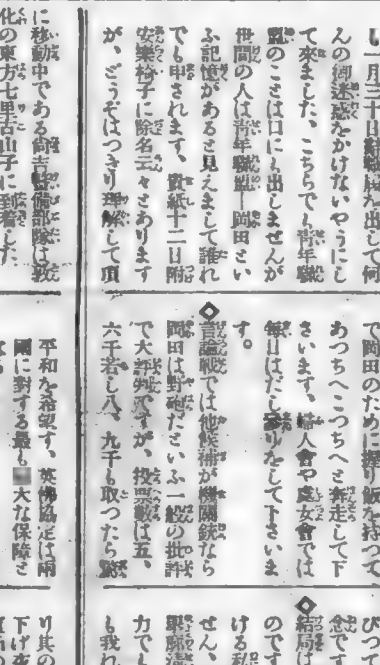 し一月三十日辭職届を出して何
んの御迷惑をかけないやうにし
て來ました、こちらでも青年聯
盟のことは口にも出しませんが
世間の人は青年聯盟―岡田とい
ふ記憶があると見えまして誰れ
でも申されます、貴紙十二日附
安樂椅子に除名云々とあります
が、どうぞはつきり理解して頂
に移動中である尚吉警備部隊は敦
化の東方七里古山子に到着した
で岡田のために握り飯を持つて
あつちへこつちへと奔走して下
さいます、婦人會や處女會では
毎日はだし參りをして下さいま
す。
◇言論戰では他候補が機關銃なら
岡田は野砲だといふ一般の批評
で大評判ですが、投票數は五、
六千若し八、九千も取つたら
平和を希望す、英佛協定は兩
國に對する最も大な保障と
びつて
念です
◇結局
のです
ける私
せん、
力でし
も我れ
り其の
下げ